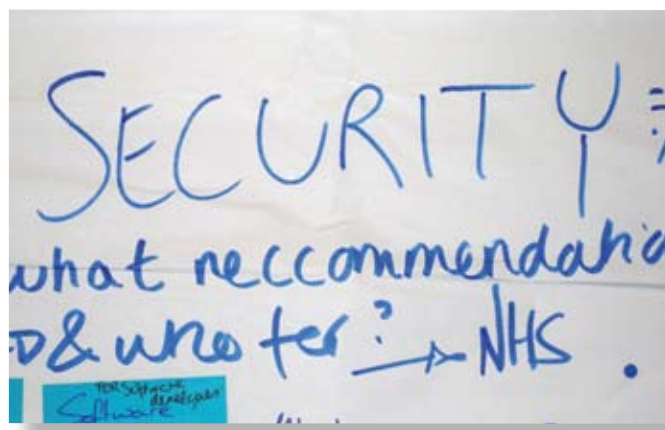 SECURITY
what reccommendatio
& who for? → NHS.
FOR Software
developers
Software